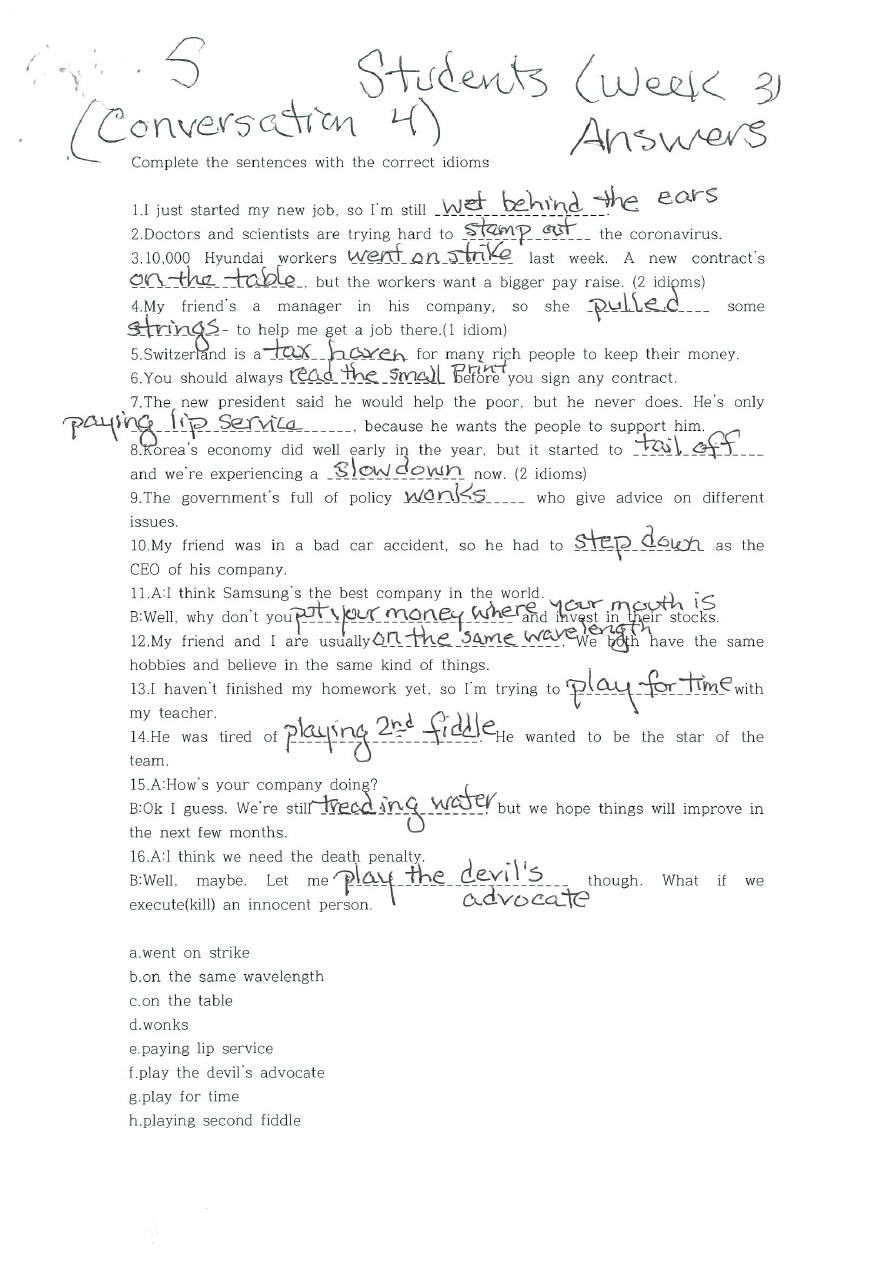 5 Students (Week 3)
(Conversation 4) Answers
Complete the sentences with the correct idioms
1.I just started my new job, so I'm still wet behind the ears
2.Doctors and scientists are trying hard to stamp out the coronavirus.
3.10,000 Hyundai workers went on strike last week. A new contract's
on the table, but the workers want a bigger pay raise. (2 idioms)
4.My friend's a manager in his company, so she pulled some
strings to help me get a job there.(1 idiom)
5.Switzerland is a tax haven for many rich people to keep their money.
6.You should always read the small print before you sign any contract.
7.The new president said he would help the poor, but he never does. He's only
paying lip service, because he wants the people to support him.
8.Korea's economy did well early in the year, but it started to tail off
and we're experiencing a slowdown now. (2 idioms)
9.The government's full of policy wonks who give advice on different
issues.
10.My friend was in a bad car accident, so he had to step down as the
CEO of his company.
11.A:I think Samsung's the best company in the world.
B:Well, why don't you put your money where your mouth is and invest in their stocks.
12.My friend and I are usually on the same wavelength. We both have the same
hobbies and believe in the same kind of things.
13.I haven't finished my homework yet, so I'm trying to play for time with
my teacher.
14.He was tired of playing 2nd fiddle. He wanted to be the star of the
team.
15.A:How's your company doing?
B:Ok I guess. We're still treading water, but we hope things will improve in
the next few months.
16.A:I think we need the death penalty.
B:Well, maybe. Let me play the devil's advocate though. What if we
execute(kill) an innocent person.
a.went on strike
b.on the same wavelength
c.on the table
d.wonks
e.paying lip service
f.play the devil's advocate
g.play for time
h.playing second fiddle